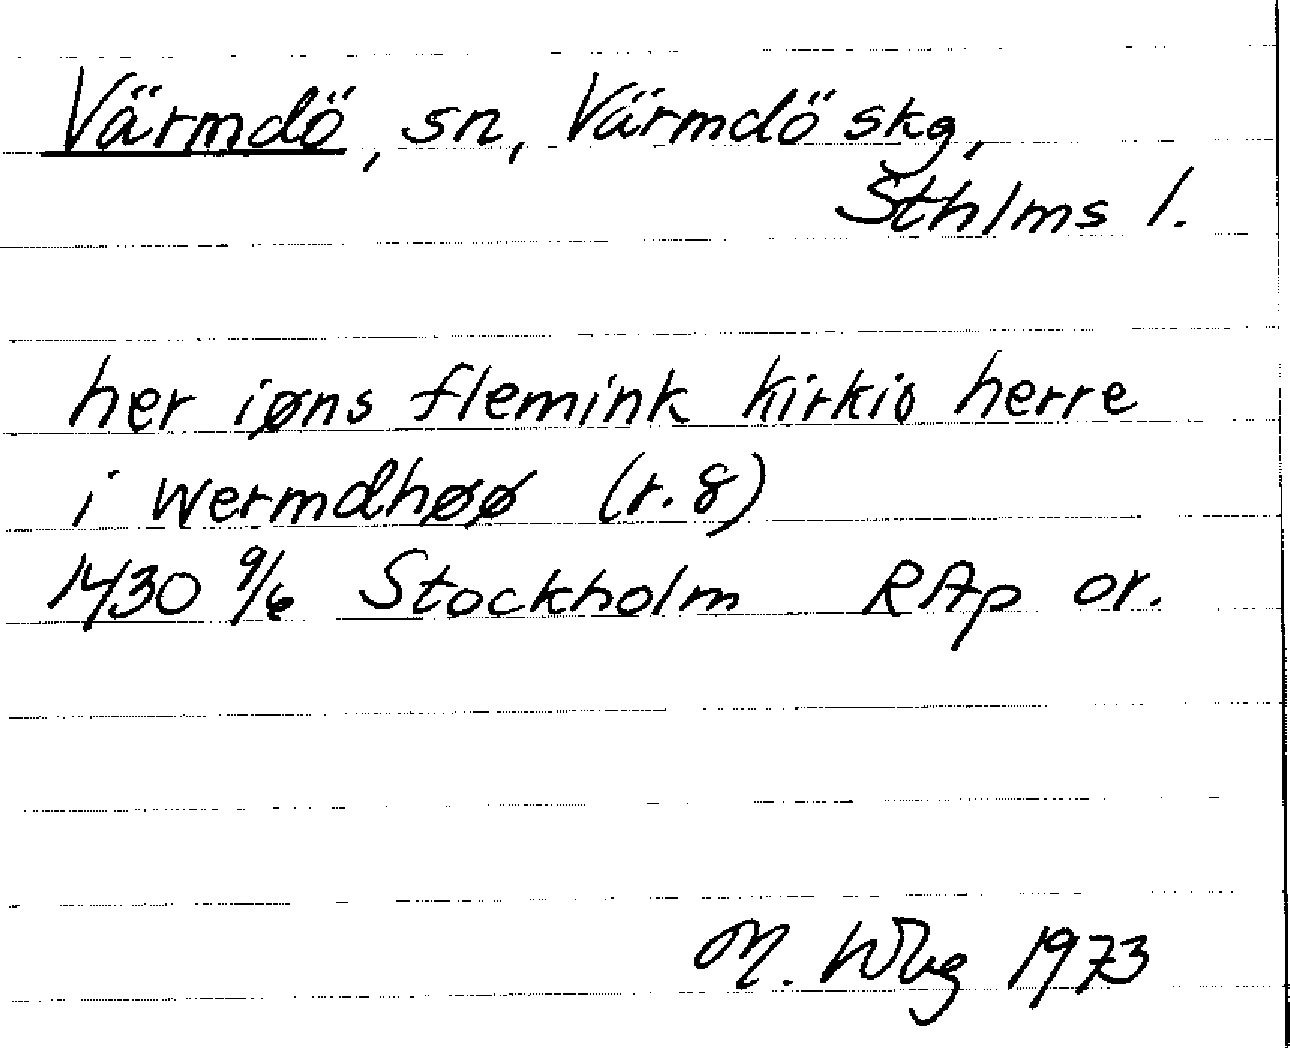 Värmdö, sn, Värmdö skg,
Sthlms l.
her iøns flemink kirkio herre
i wermdhøø (r. 8)
1430 9/6 Stockholm RAp or.
M. Wbg 1973